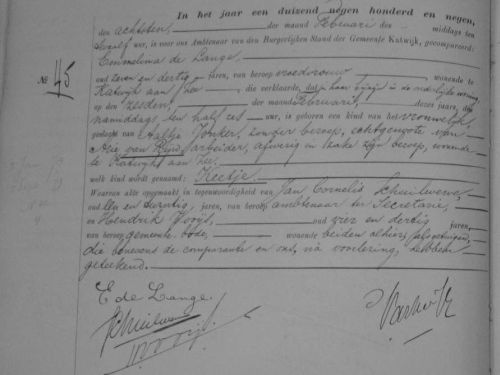 In het jaar een duizend negen honderd en negen,
den achtsten, der maand Februari des middags ten
twaalf ure, is voor ons Ambtenaar van den Burgerlijken Stand der Gemeente Katwijk, gecompareerd:
de Lange,
oud zeven en dertig jaren, van beroep vroedvrouw wonende te
No. 45
Katwijk aan Zee die verklaarde, dat
op den zesden, der maand Februari, dezes jaars, des
namiddags ten half elf ure, is geboren een kind van het vrouwelijk,
geslacht van Aaltje Jonker, zonder beroep, echtgenoote van
Arie van Rijn, arbeider, afwezig in zake zijn beroep, wonende
te Katwijk aan Zee,
welk kind wordt genaamd: Neeltje.
Waarvan akte opgemaakt in tegenwoordigheid van Jan Cornelis
oud en dertig, jaren, van beroep ambtenaar ter Secretarie,
en Hendrik oud vier en dertig jaren,
van beroep gemeente bode, wonende beiden alhier, als getuigen,
die benevens de comparante en ons, na voorlezing, hebben
geteekend.
E de Lange.